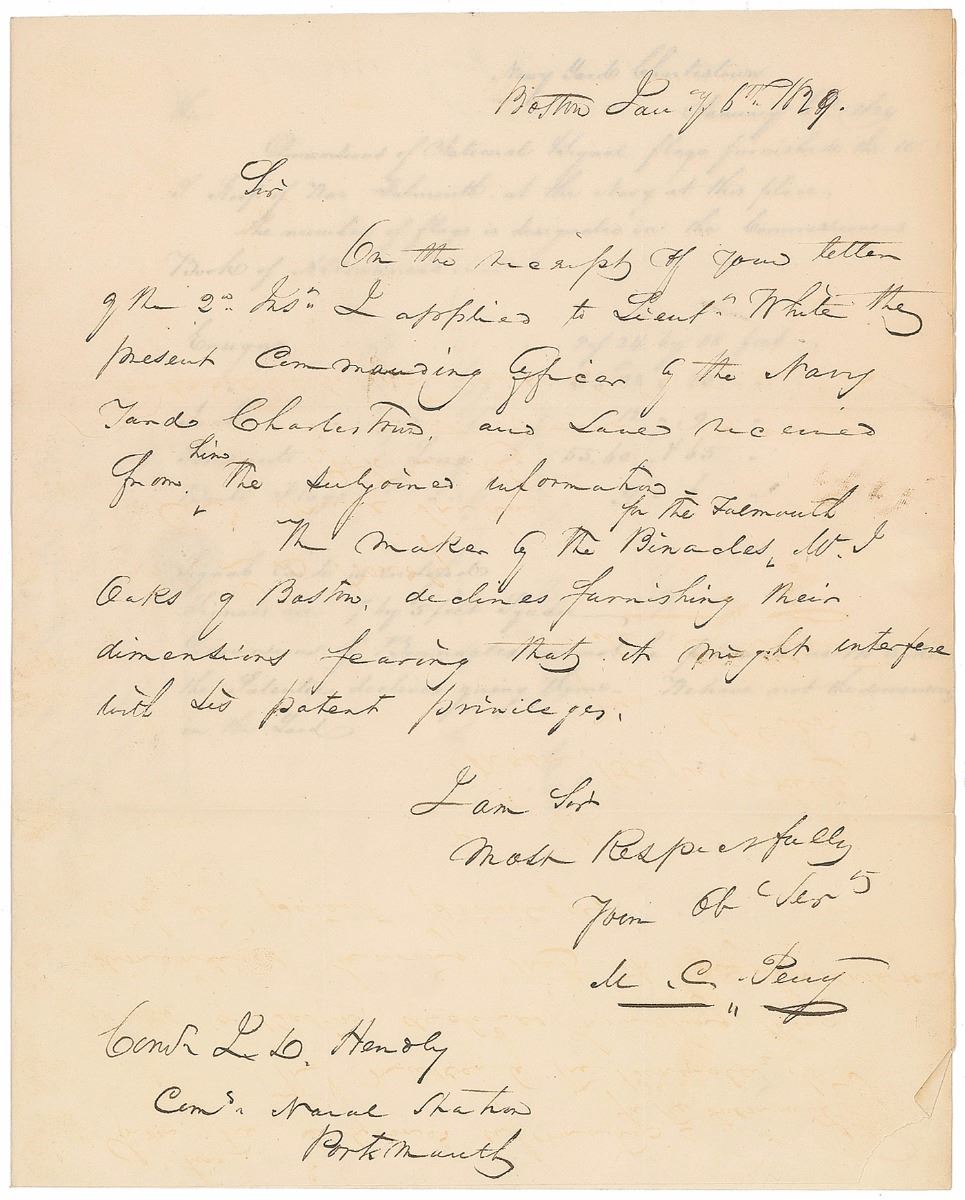 Boston Jany 6th 1829.
Sir
On the receipt of your letter
of the 2d Inst I applied to Lieut White the
present Commanding Officer of the Navy
Yard Charlestown, and have received
from him the subjoined information
The maker of the Binacles for the Falmouth, Mr. I
Oaks of Boston, declines furnishing their
dimensions fearing that it might interfere
with his patent privileges.
I am Sir
Most Respectfully
Your Ob Servt
M. C. Perry
Comdr
Comg Naval Station
Portsmouth